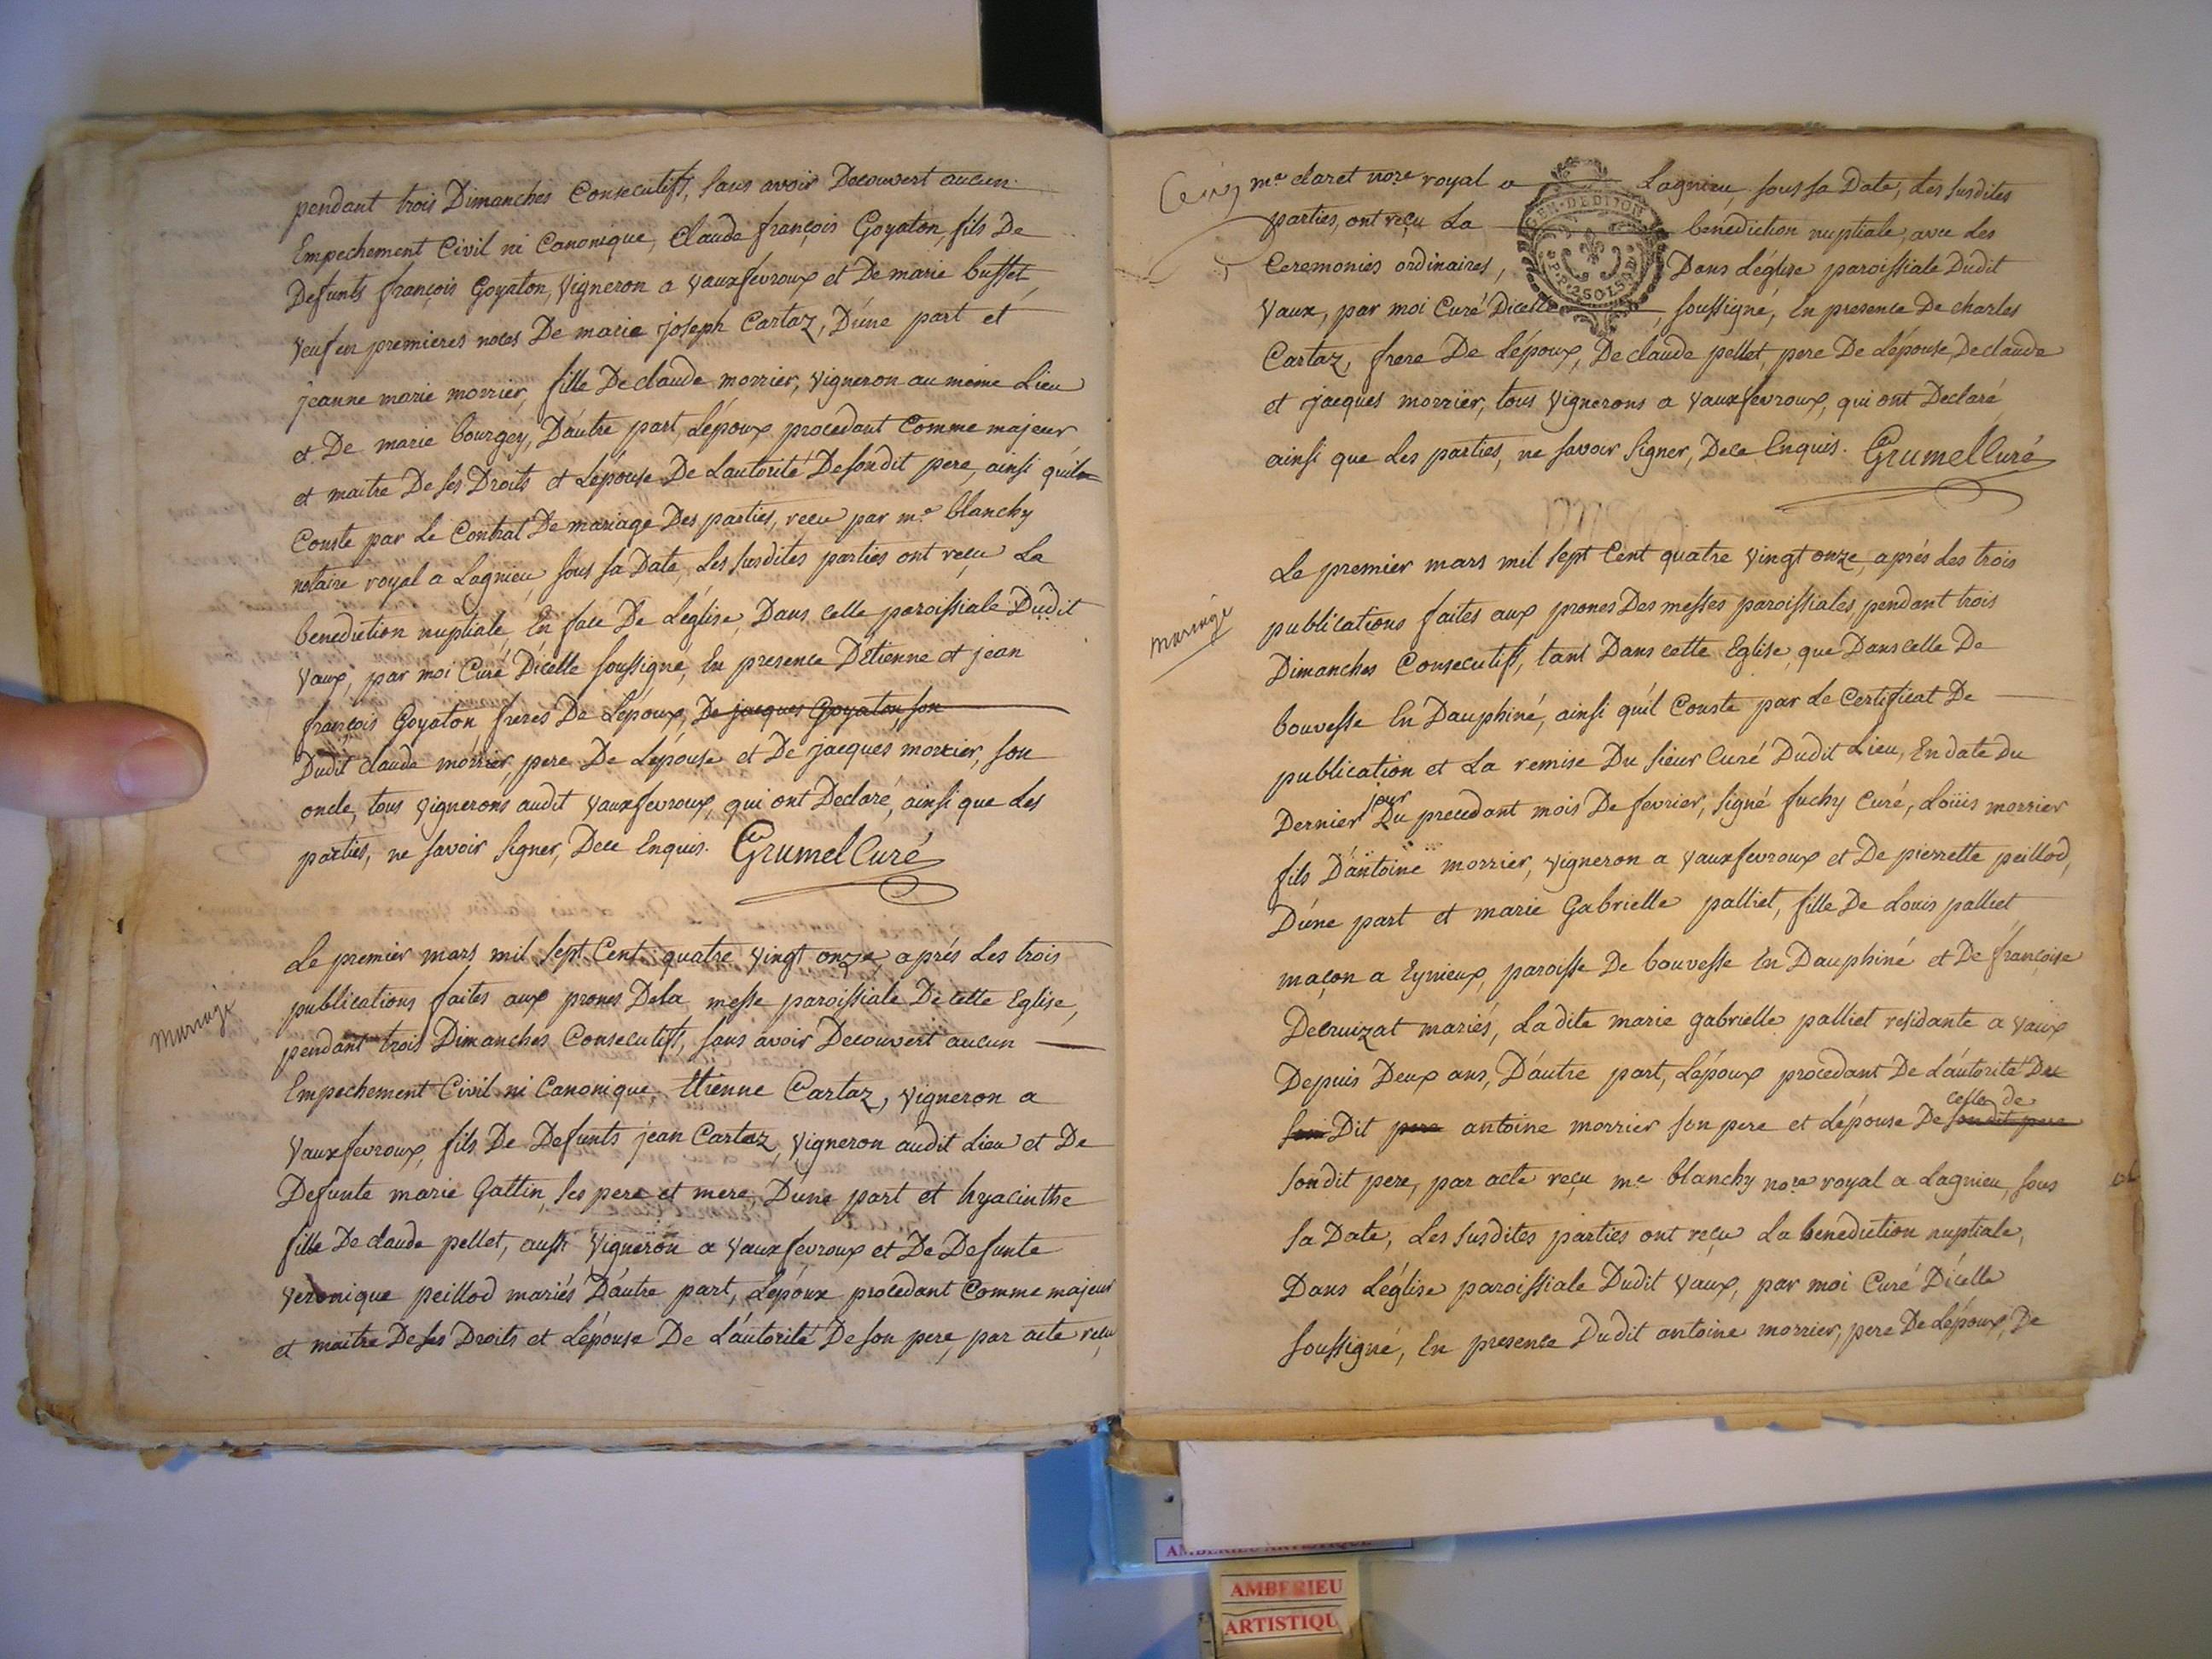 pendant trois Dimanches Consecutifs, sans avoir Decouvert aucun
Empechement Civil ni Canonique, Claude françois Goyaton, fils De
Defunts françois Goyaton, vigneron a vauxfevroux et De marie busset,
veuf en premieres noces De marie joseph Cartaz, D'une part et
jeanne marie morrier, fille De claude morrier, vigneron au même Lieu
et De marie bourgey, D'autre part, L'époux procedant Comme majeur
et maitre De ses Droits et L'épouse De L'autorité De sondit pere, ainsi qu'il
Conste par Le Contrat De mariage Des parties, recu par me blanchy
notaire royal a Lagnieu, sous sa Date, Les susdites parties ont reçu La
benediction nuptiale, En face De L'église, Dans celle paroissiale Dudit
Vaux, par moi Curé D'icelle soussigné, En presence D'Etienne et jean
françois Goyaton, freres De L'époux, De jacques Goyaton son
Dudit claude morrier pere De L'épouse et De jacques morrier, son
oncle, tous vignerons audit vauxfevroux, qui ont Declaré, ainsi que Les
parties, ne savoir signer, De ce Enquis. Grumel Curé
mariage
Le premier mars mil sept Cent quatre vingt onze, aprés Les trois
publications faites aux prones De La messe paroissiale De cette Eglise,
pendant trois Dimanches Consecutifs, sans avoir Decouvert aucun
Empechement Civil ni Canonique, Etienne Cartaz, vigneron a
Vauxfevroux, fils De Defunts jean Cartaz, vigneron audit Lieu et De
Defunte marie Gattin, ses pere et mere, D'une part et hyacinthe
fille De claude pellet, aussi vigneron a vauxfevroux et De Defunte
veronique peillod mariés D'autre part, L'époux procedant Comme majeur
et maitre De ses Droits et L'épouse De L'autorité De son pere, par acte reçu
me claret nore royal a Lagnieu, sous sa Date, Les susdites
parties, ont reçu La benediction nuptiale, avec Les
Ceremonies ordinaires, Dans L'église paroissiale Dudit
Vaux, par moi Curé D'icelle, soussigné, En presence De charles
GEN. DE DIJON
Cartaz, frere De L'époux, De claude pellet, pere De L'épouse, De claude
et jacques morrier, tous vignerons a vauxfevroux, qui ont Declaré
ainsi que Les parties, ne savoir signer, De ce Enquis. Grumel Curé
mariage
Le premier mars mil sept Cent quatre vingt onze, aprés Les trois
publications faites aux prones Des messes paroissiales, pendant trois
Dimanches Consecutifs, tant Dans cette Eglise, que Dans celle De
bouvesse En Dauphiné, ainsi qu'il Conste par Le Certificat De
publication et La remise Du sieur Curé Dudit Lieu, En date du
Dernier jour Du precedant mois De fevrier, signé fuchy Curé, Loüis morrier
fils D'antoine morrier, vigneron a vauxfevroux et De pierrette peillod,
D'une part et marie Gabrielle palliet, fille De Louis palliet
maçon a Eynieux, paroisse De bouvesse En Dauphiné et De françoise
Decruizat mariés, La dite marie gabrielle palliet residante a vaux
Depuis Deux ans, D'autre part, L'époux procedant De L'autorité Du
son Dit pere antoine morrier son pere et L'épouse De celle de sondit pere
sondit pere, par acte reçu me blanchy nore royal a Lagnieu, sous
sa Date, Les susdites parties ont reçu La benediction nuptiale,
Dans L'église paroissiale Dudit Vaux, par moi Curé D'icelle
soussigné, En presence Dudit antoine morrier, pere De L'époux, De
AMBERIEU
ARTISTIQU